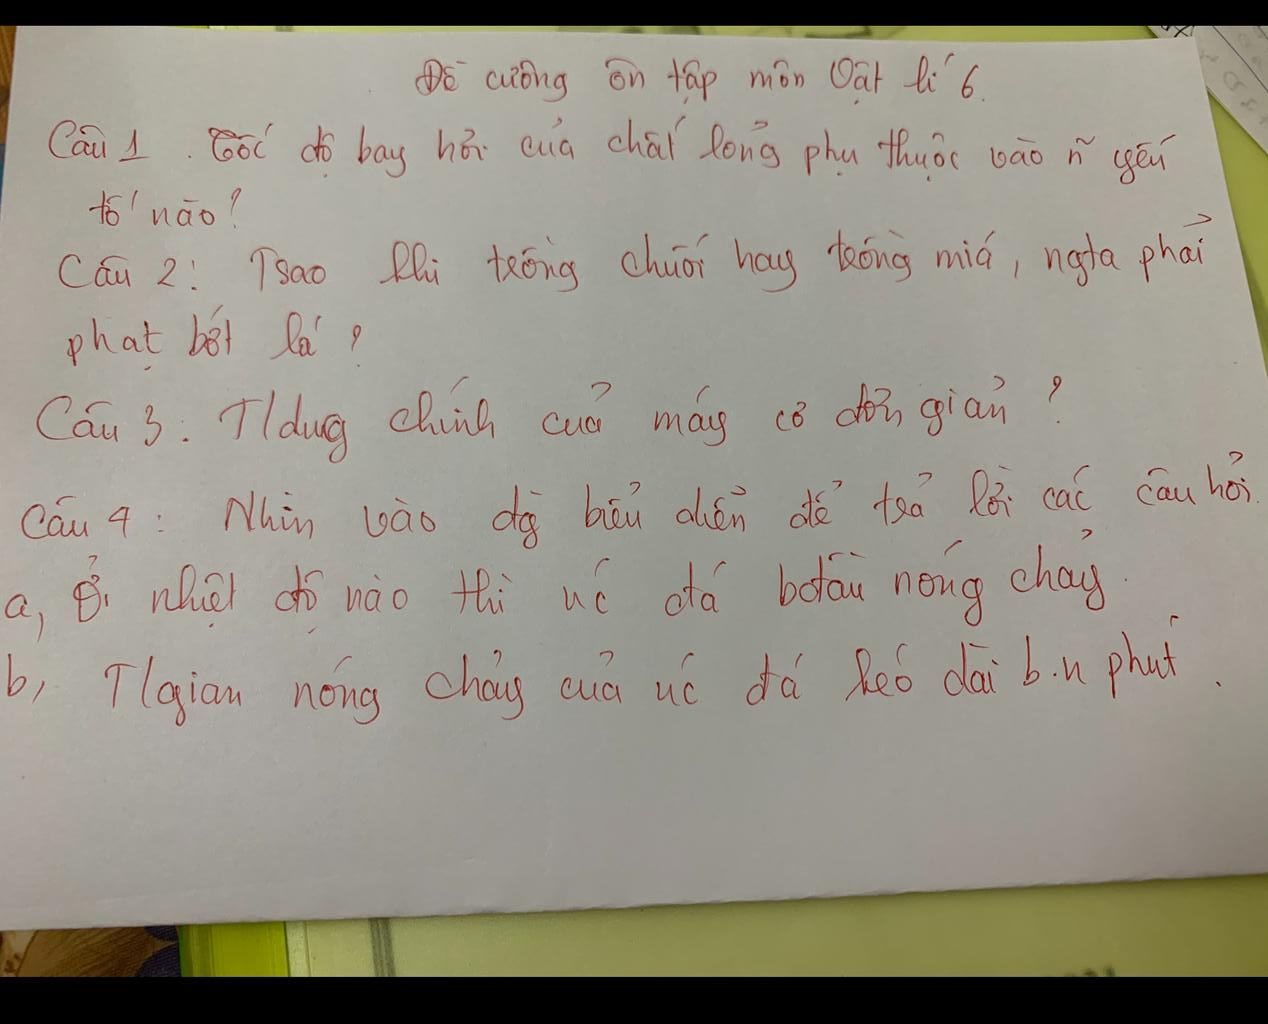 Đề cương ôn tập môn Vật lí 6.
Câu 1. Tốc độ bay hơi của chất lỏng phụ thuộc vào ñ yếu
tố nào?
Câu 2: Tsao khi trồng chuối hay trồng mía, ngta phải
phạt bớt lá?
Câu 3: T/dụg chính của máy cơ đơn giản?
Câu 4: Nhìn vào đg biểu diễn để trả lời các câu hỏi.
a, Ở nhiệt độ nào thì nc đá bđầu nóng chảy.
b, T/gian nóng chảy của nc đá kéo dài b.n phút.